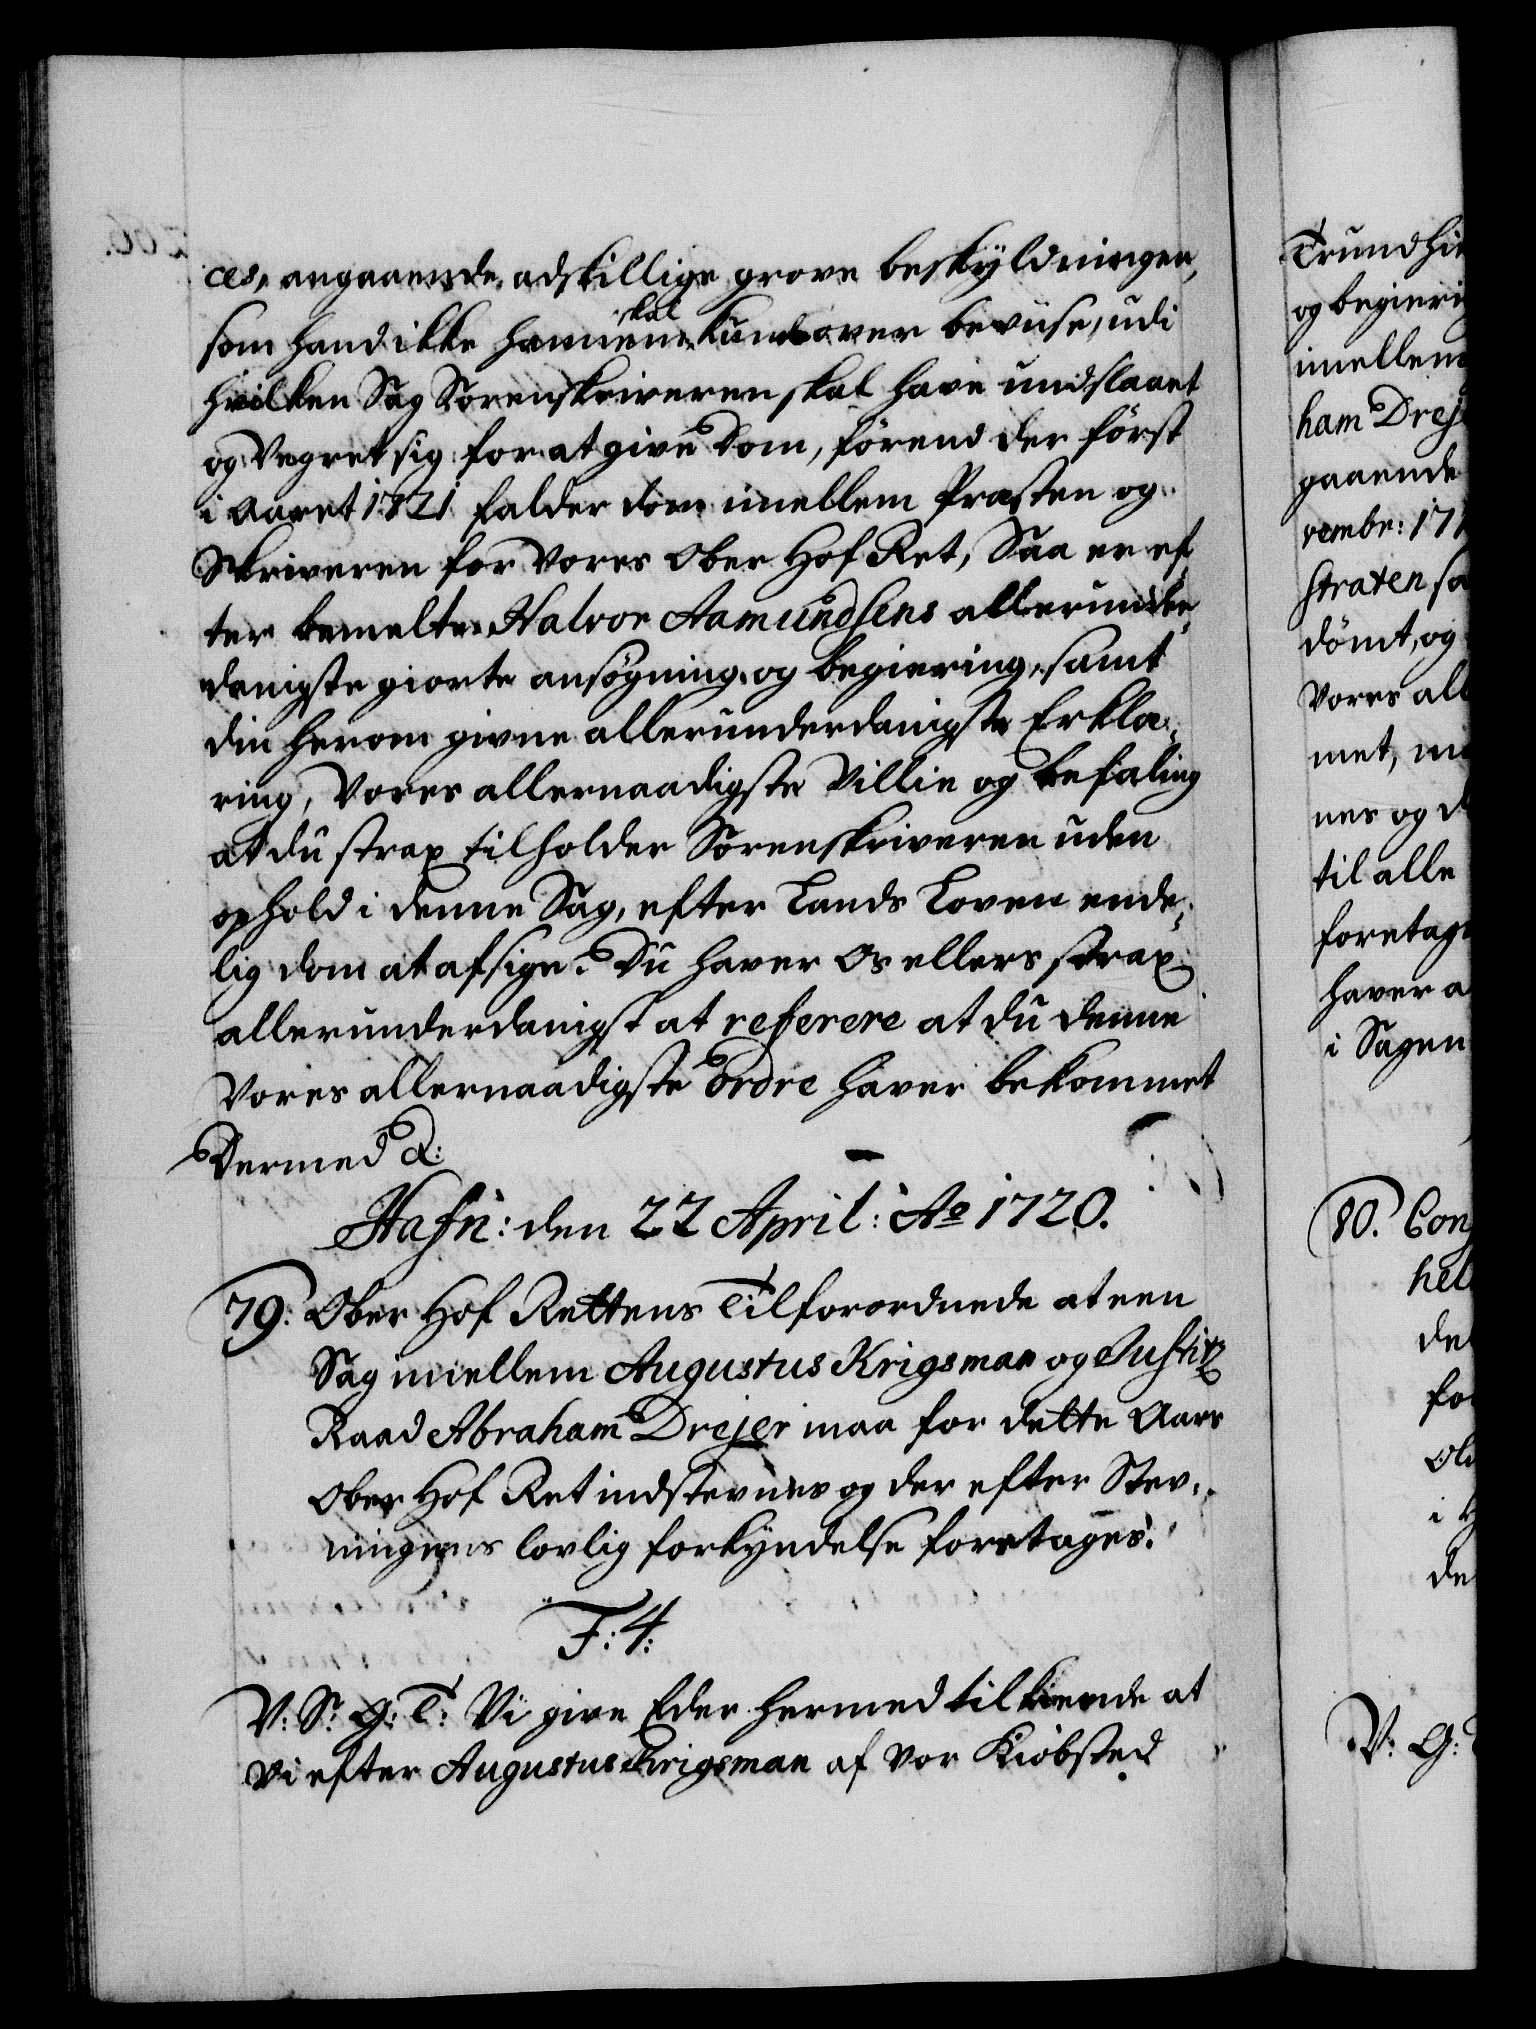 ces, angaaende adskillige grove beskyldninger,
som hand ikke hannem skal kunde over bevise, udi
hvilken Sag Sorenskriveren skal have undslaaet
og Vegret sig for at give Dom, förend der först
i Aaret 1721 falder dom imellem Præsten og
Skriveren for Vores Ober Hof Ret, Saa er ef,
ter bemelte Halvor Aamundsens allerunder,
danigste giorte ansögning og begiering, samt
din herom givne allerunderdanigste Erklæ,
ring, Vores allernaadigste Villie og befaling
at du strax tilholder Sorenskriveren uden
ophold i denne Sag, efter Lands Loven ende,
lig dom at afsige. Du haver Os ellers strax
allerunderdanigst at referere at du denne
Vores allernaadigste ordre haver bekommet
Dermed &:
Hafn: den 22 April: Ao 1720.
79. Ober Hof Rettens Tilforordnede at een
Sag imellem Augustus Krigsman og Justitz
Raad Abraham Drejer maa for dette Aars
Ober Hof Ret indstevnes og der efter Stev,
ningens lovlig forkyndelse foretages.
F: 4:
V: S: G: T: Vi give Eder hermed tilkiende at
Vi efter Augustus Krigsman af Vor Kiöbsted
Trundhie
og begieri
imellem
ham Drej
gaaende
vembr: 17
straten sa
dömt, og
Vores all
met,
nes og d
til alle
foretag
haver a
i Sagen
80. Con
hel
de
fo
i
de
V: G: